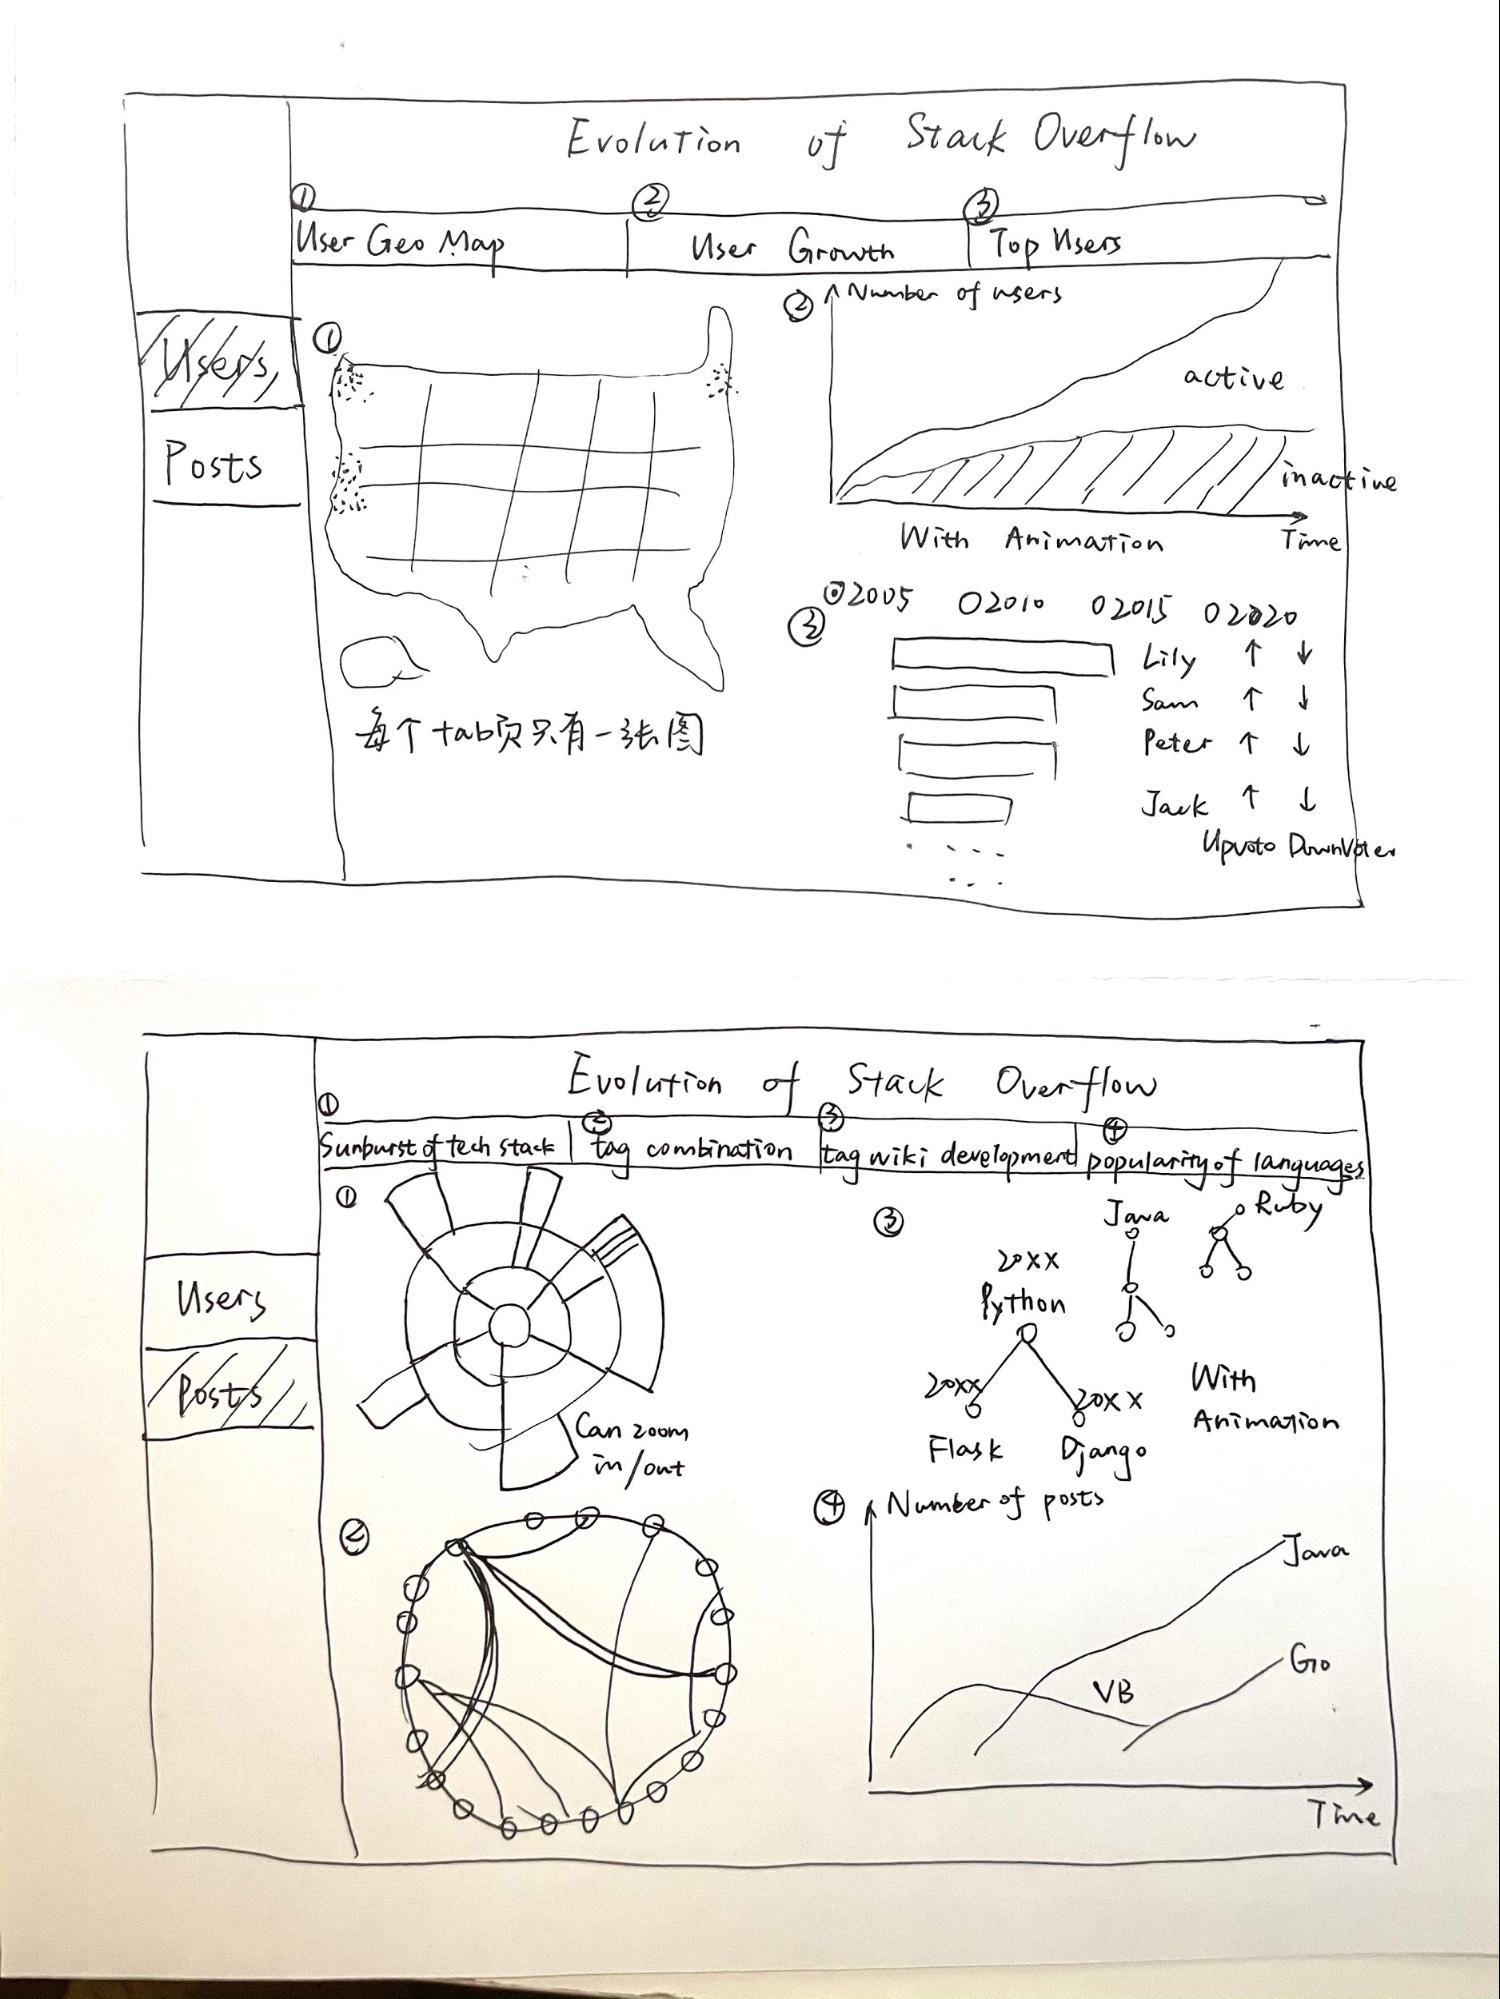 Evolution of Stack Overflow
① ② ③
User Geo Map User Growth Top Users
Users
Posts
①
② Number of users
active
inactive
With Animation Time
③ 2005 2010 2015 2020
Lily ↑ ↓
Sam ↑ ↓
Peter ↑ ↓
Jack ↑ ↓
Upvoto DownVoter
每个tab页只有一张图
Evolution of Stack Overflow
① ② ③ ④
Sunburst of tech stack tag combination tag wiki development popularity of languages
Users
Posts
①
Can zoom
in/out
②
③
Java Ruby
20XX
Python
20XX 20XX
Flask Django
With
Animation
④ Number of posts
Java
VB
Go
Time